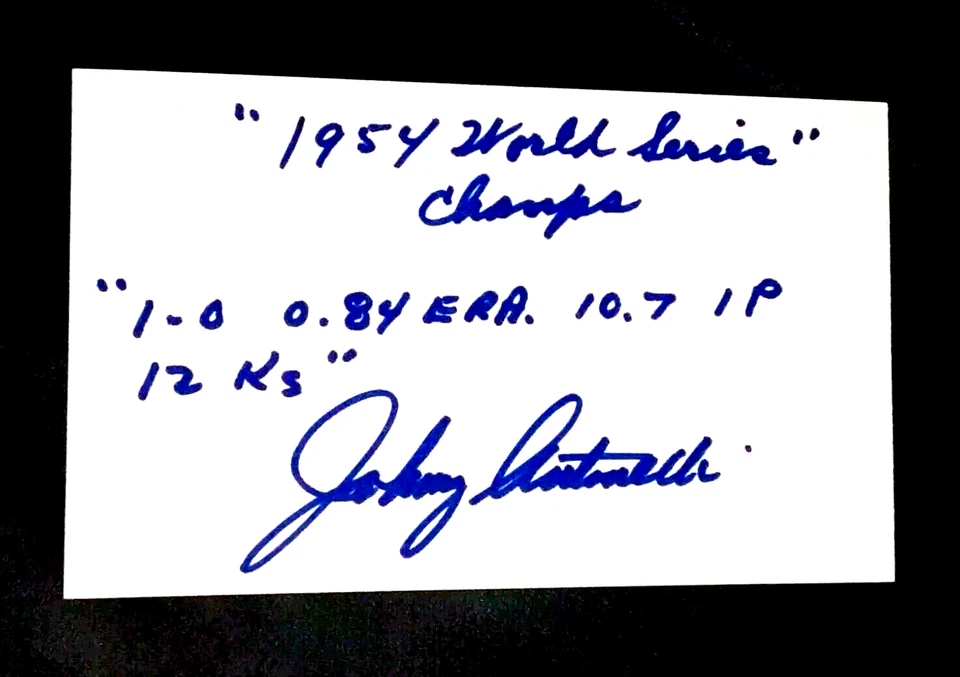 "1954 World Series"
Champs
"1-0 0.84 ERA. 10.7 IP
12 Ks"
Johnny Antonelli